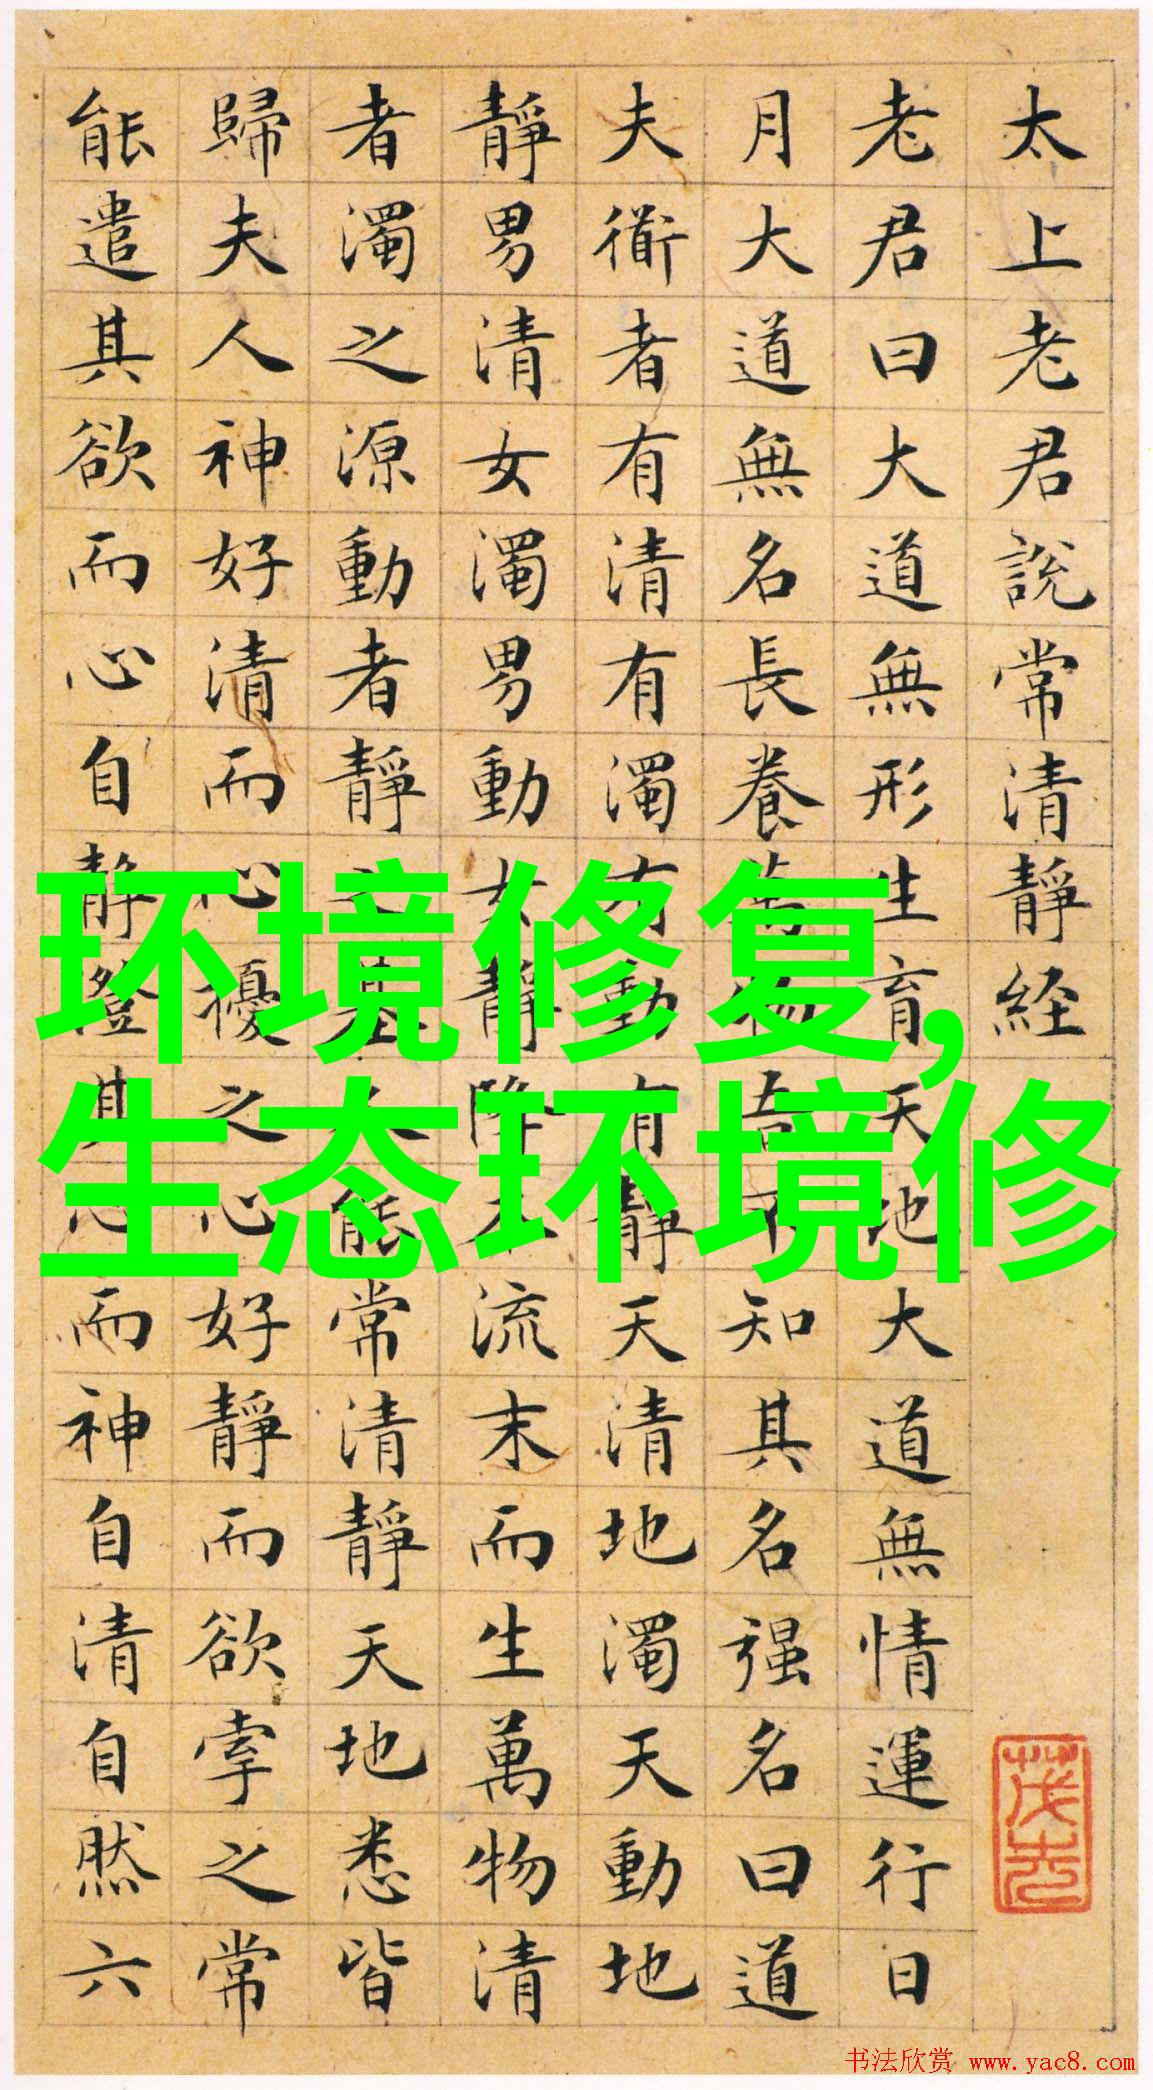 环境修复,
生态环境修
太上老君說常清靜経
老君曰大道無形生育天地大道無情運行日
月大道無名長養萬物吾不知其名强名曰道
夫衜者有清有濁有動有靜天清地濁天動地
靜男清女濁男動女靜降本流末而生萬物清
者濁之源動者靜之基人能常清靜天地悉皆
歸夫人神好清而心擾之心好靜而欲牽之常
能遣其欲而心自静澄其心而神自清自然六
书法欣赏 www.yac8.com